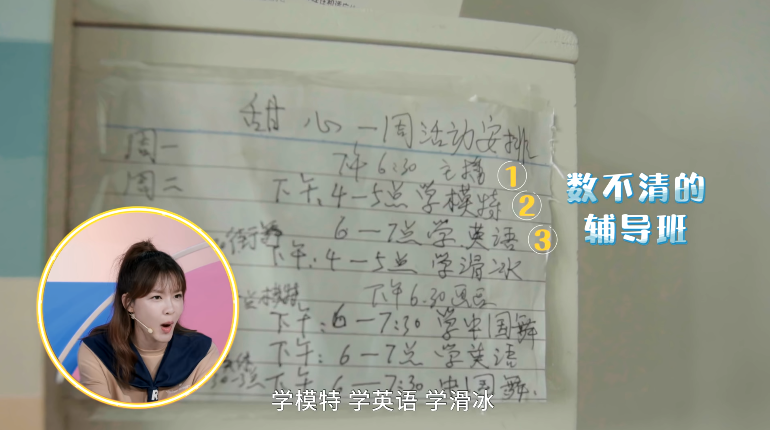 甜心一周活动安排
周一 下午6:30 主播
①
周二 下午:4-5点学模特
②
6-7点学英语
③
下午:4-5点 学滑冰
下午6:30画画
下午:6-7:30 学中国舞
下午:6-7点 学英语
下午 6-7:30 中国舞
数不清的
辅导班
R
学模特 学英语 学滑冰